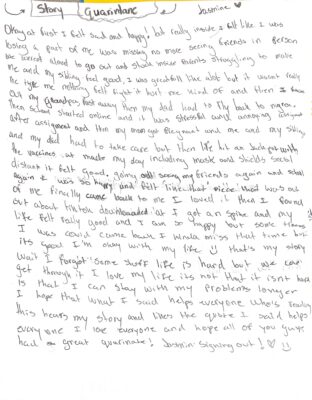 Story Quarintane Jasmine ♡
Okay at first I felt sad and happy! but really inside I felt like I was
losing a part of me was missing no more seeing friends in person
we werent alowd to go out and stuck inside Parents struggling to make
me and my sibling feel good, I was greatfull like alot but it wasnt really
the type me nothing felt right it hurt me kind of and then I
out my Grandpas passed away then my dad had to fly back to
Then school started online and it was stressful and annoying
after assignment and then my mom got Pregnant and me and my siblings
and my dad had to take care but then life hit us back got with
the vaccines at made my day including masks and shields social
distant it felt good, going seeing my friends again and school
again I was so happy and felt like that piece that was out
of me finally came back to me I loved it then I found
out about tiktok downloaded at I got an iPhone and my
life felt really good and I am so happy but some times
I was could come back I Kinda miss that time but
its good I'm okay with my life :) that's my story
Wait I forgot "Some stuff life is hard but we can
get through it I love my life its not that it isnt hard
is that I can stay with my problems longer
I hope that what I said helps everyone who's reading
this hears my story and likes the quote I said helps
everyone I love everyone and hope all of you guys
had a great quarinate! Jasmin signing out! ♡ :)